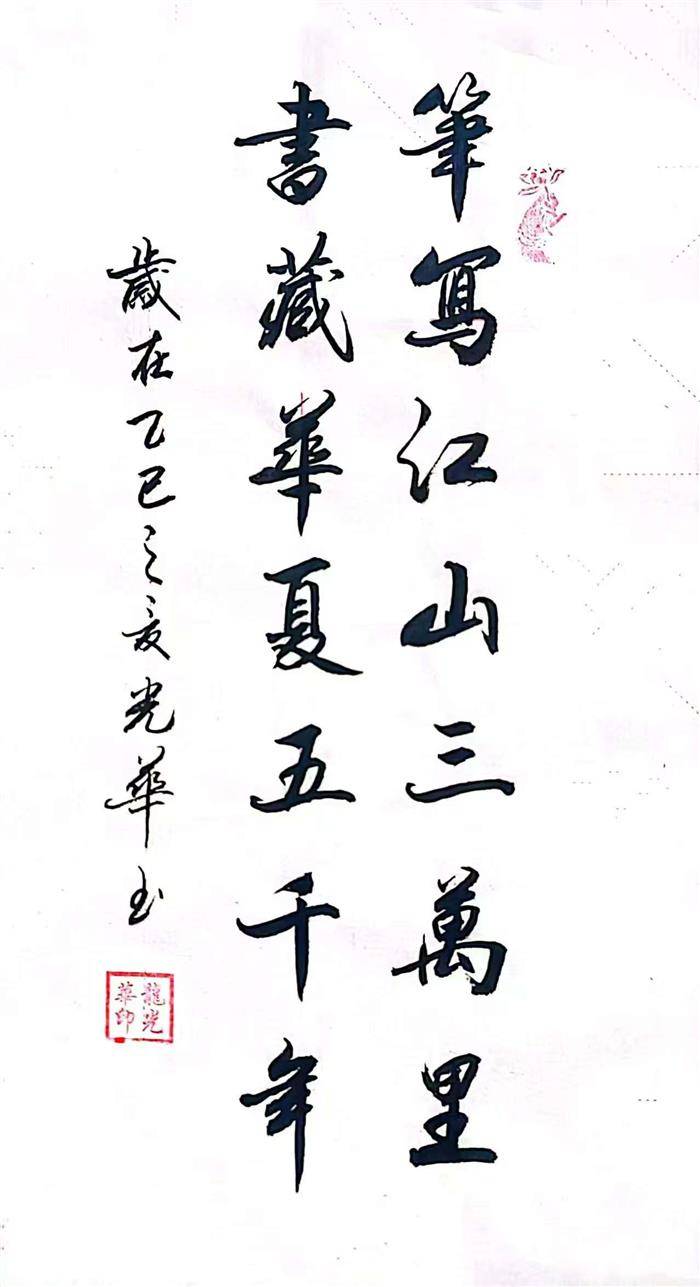 筆寫江山三萬里
書藏華夏五千年
歲在乙巳之夏光華书
龍光華印